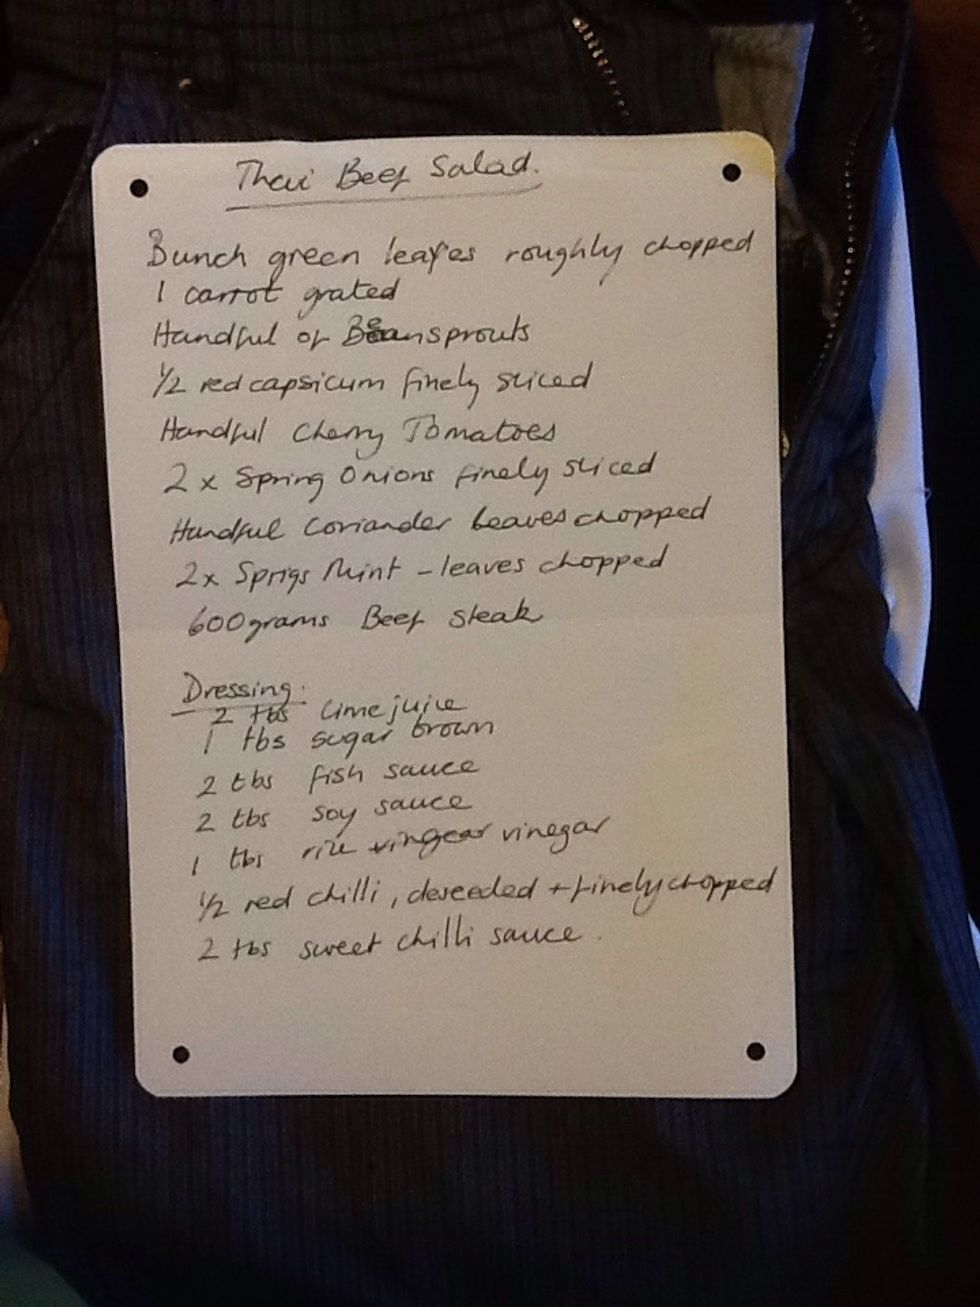 Thai Beef Salad.
Bunch green leaves roughly chopped
1 carrot grated
Handful of Beansprouts
1/2 red capsicum finely sliced
Handful Cherry Tomatoes
2 x Spring Onions finely sliced
Handful Coriander leaves chopped
2x Sprigs Mint - leaves chopped
600grams Beef steak
Dressing:
2 tbs lime juice
1 tbs sugar brown
2 tbs fish sauce
2 tbs soy sauce
1 tbs rice vinegar
1/2 red chilli, deseeded + finely chopped
2 tbs sweet chilli sauce.